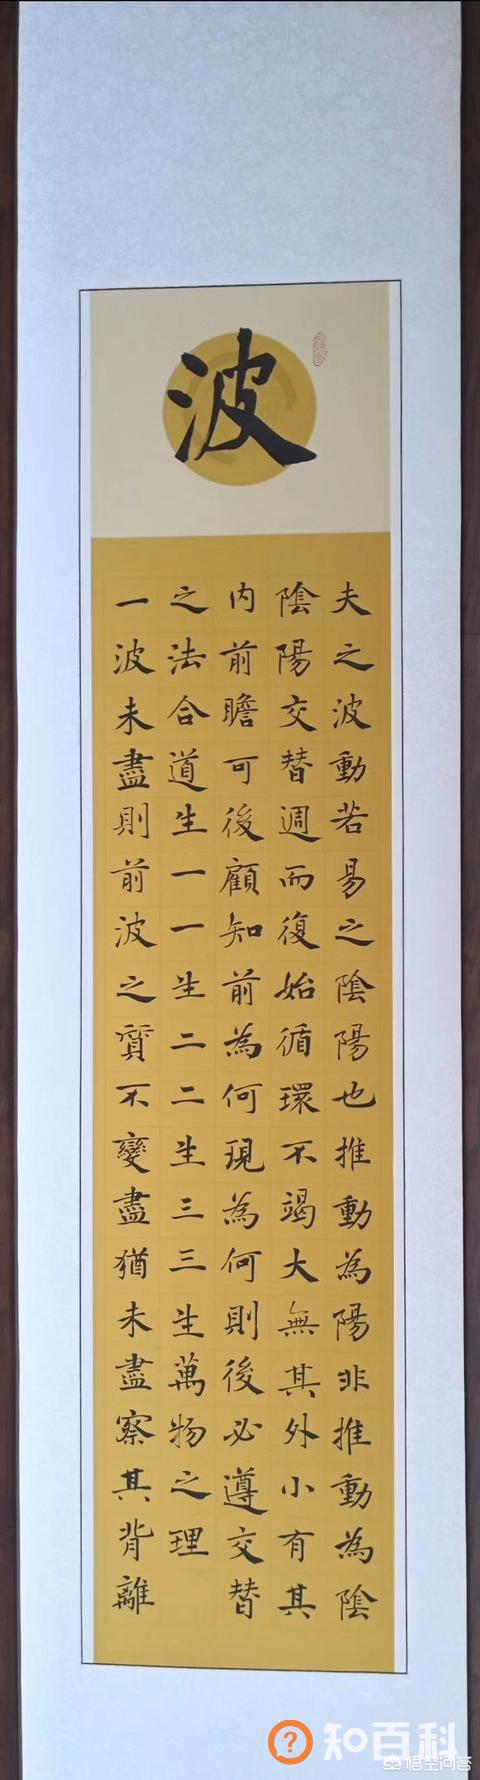 波
夫之波動若易之陰陽也推動為陽非推動為陰
陰陽交替週而復始循環不竭大無其外小有其
内前瞻可後顧知前為何現為何則後必遵交替
之法合道生一一生二二生三三生萬物之理
一波未盡則前波之質不變盡猶未盡察其背離
知百科
悟空问答